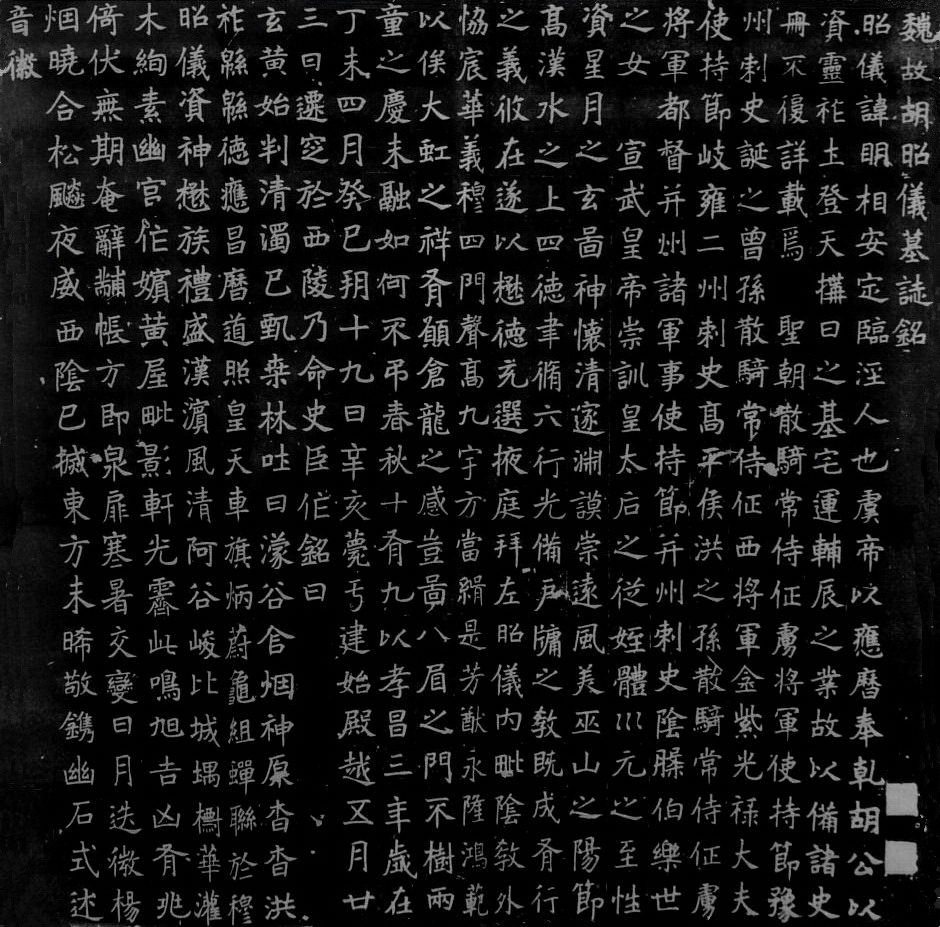 魏故胡昭儀墓誌銘
昭儀諱明相安定臨涇人也虞帝以應曆奉乹胡公以
資靈祚土登天構日之基宅運輔辰之業故以備諸史
冊不復詳載焉　聖朝散騎常侍征虜將軍使持節豫
州刺史誕之曾孫散騎常侍征西將軍金紫光禄大夫
使持節岐雍二州刺史髙平侯洪之孫散騎常侍征虜
將軍都督并州諸軍事使持節并州刺史陰槃伯樂世
之女　宣武皇帝崇訓皇太后之従姪體巛元之至性
資星月之玄啚神懷清邃淵謨崇遠風美巫山之陽節
髙漢水之上四德聿脩六行光備戶牖之教既成𦙍行
之義攸在遂以懋德充選掖庭拜左昭儀内毗陰教外
恊宸華義穆四門聲髙九宇方當緝是芳猷永隆鴻範
以俟大虹之祥有願倉龍之感豈啚八眉之門不樹兩
童之慶未融如何不弔春秋十有九以孝昌三年歲在
丁未四月癸巳朔十九日辛亥薨于建始殿越五月廿
三日遷窆於西陵乃命史臣作銘曰
玄黃始判清濁已甄桒林吐日濛谷含烟神原杳杳洪
祚緜緜德應昌曆道照皇天車旗炳蔚龜組蟬聯於穆
昭儀資神懋族禮盛漢濵風清阿谷峻比城堣櫹華灌
木絢素幽宮作嬪黃屋毗影軒光霽此鳴旭吉凶有兆
倚伏無期奄辭黼帳方即泉扉寒暑交變日月迭微楊
烟曉合松飈夜威西陰已掝東方未晞敬鐫幽石式述
音徽